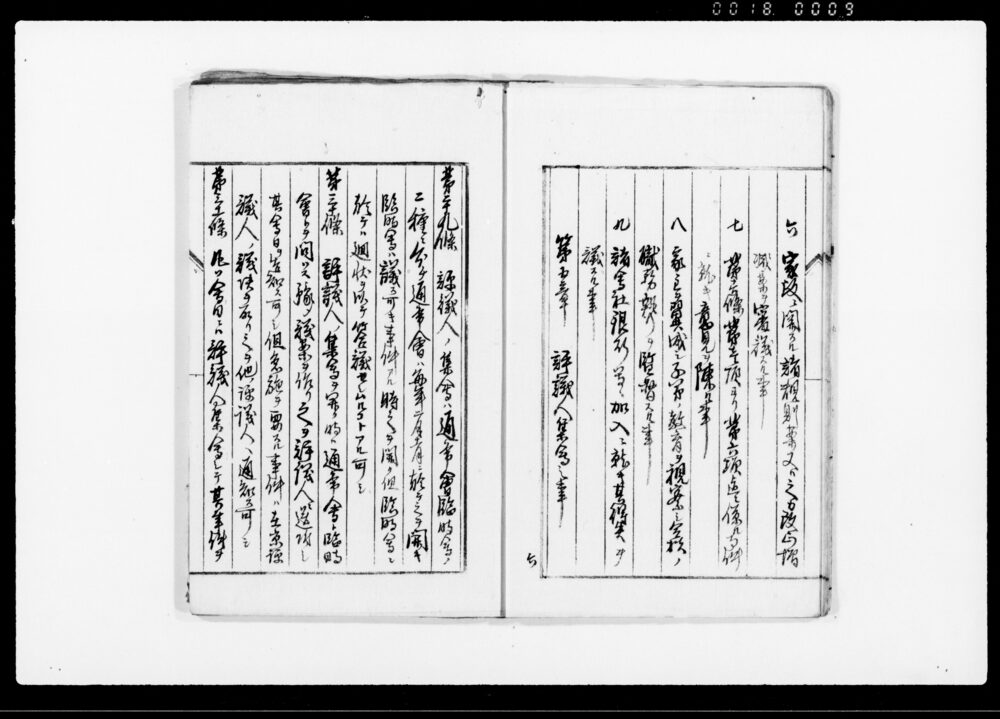 0018 0009
六 家政ニ関スル諸規則案又ハ之カ改正増
減案ヲ審議スル事
七 第二條第壱項ヨリ第六項迄ニ係ル事件
ニ就キ意見ヲ陳スル事
八 家ニ子弟ノ教育ヲ視察シ
職務ヲ監督スル事
九 諸會社銀行等ニ加入ニ就キ其得失ヲ
議スル事
第五章 評議人集會之事
六
第二十九條 評議人ノ集會ハ通常會臨時會ノ
二種ニ分ケ通常會ハ毎年二度ニ於テ之ヲ開キ
臨時會ハ議ス可キ事件アル時之ヲ開ク但臨時會ニ
於テハ廻状ヲ以テ答議セシムルコトアル可シ
第三十條 評議人ノ集會ヲ要スル時ハ通常會ト臨時
會トヲ問ハス議案ヲ作リ之ヲ評議人ニ送附シ
其會日ヲ告知ス可シ但急施ヲ要スル事件ハ在京評
議人ノ議決ヲ取リ之ヲ他ノ評議人ニ通知ス可シ
第三十一條 凡ソ會日ニハ評議人集會シテ其事件ヲ